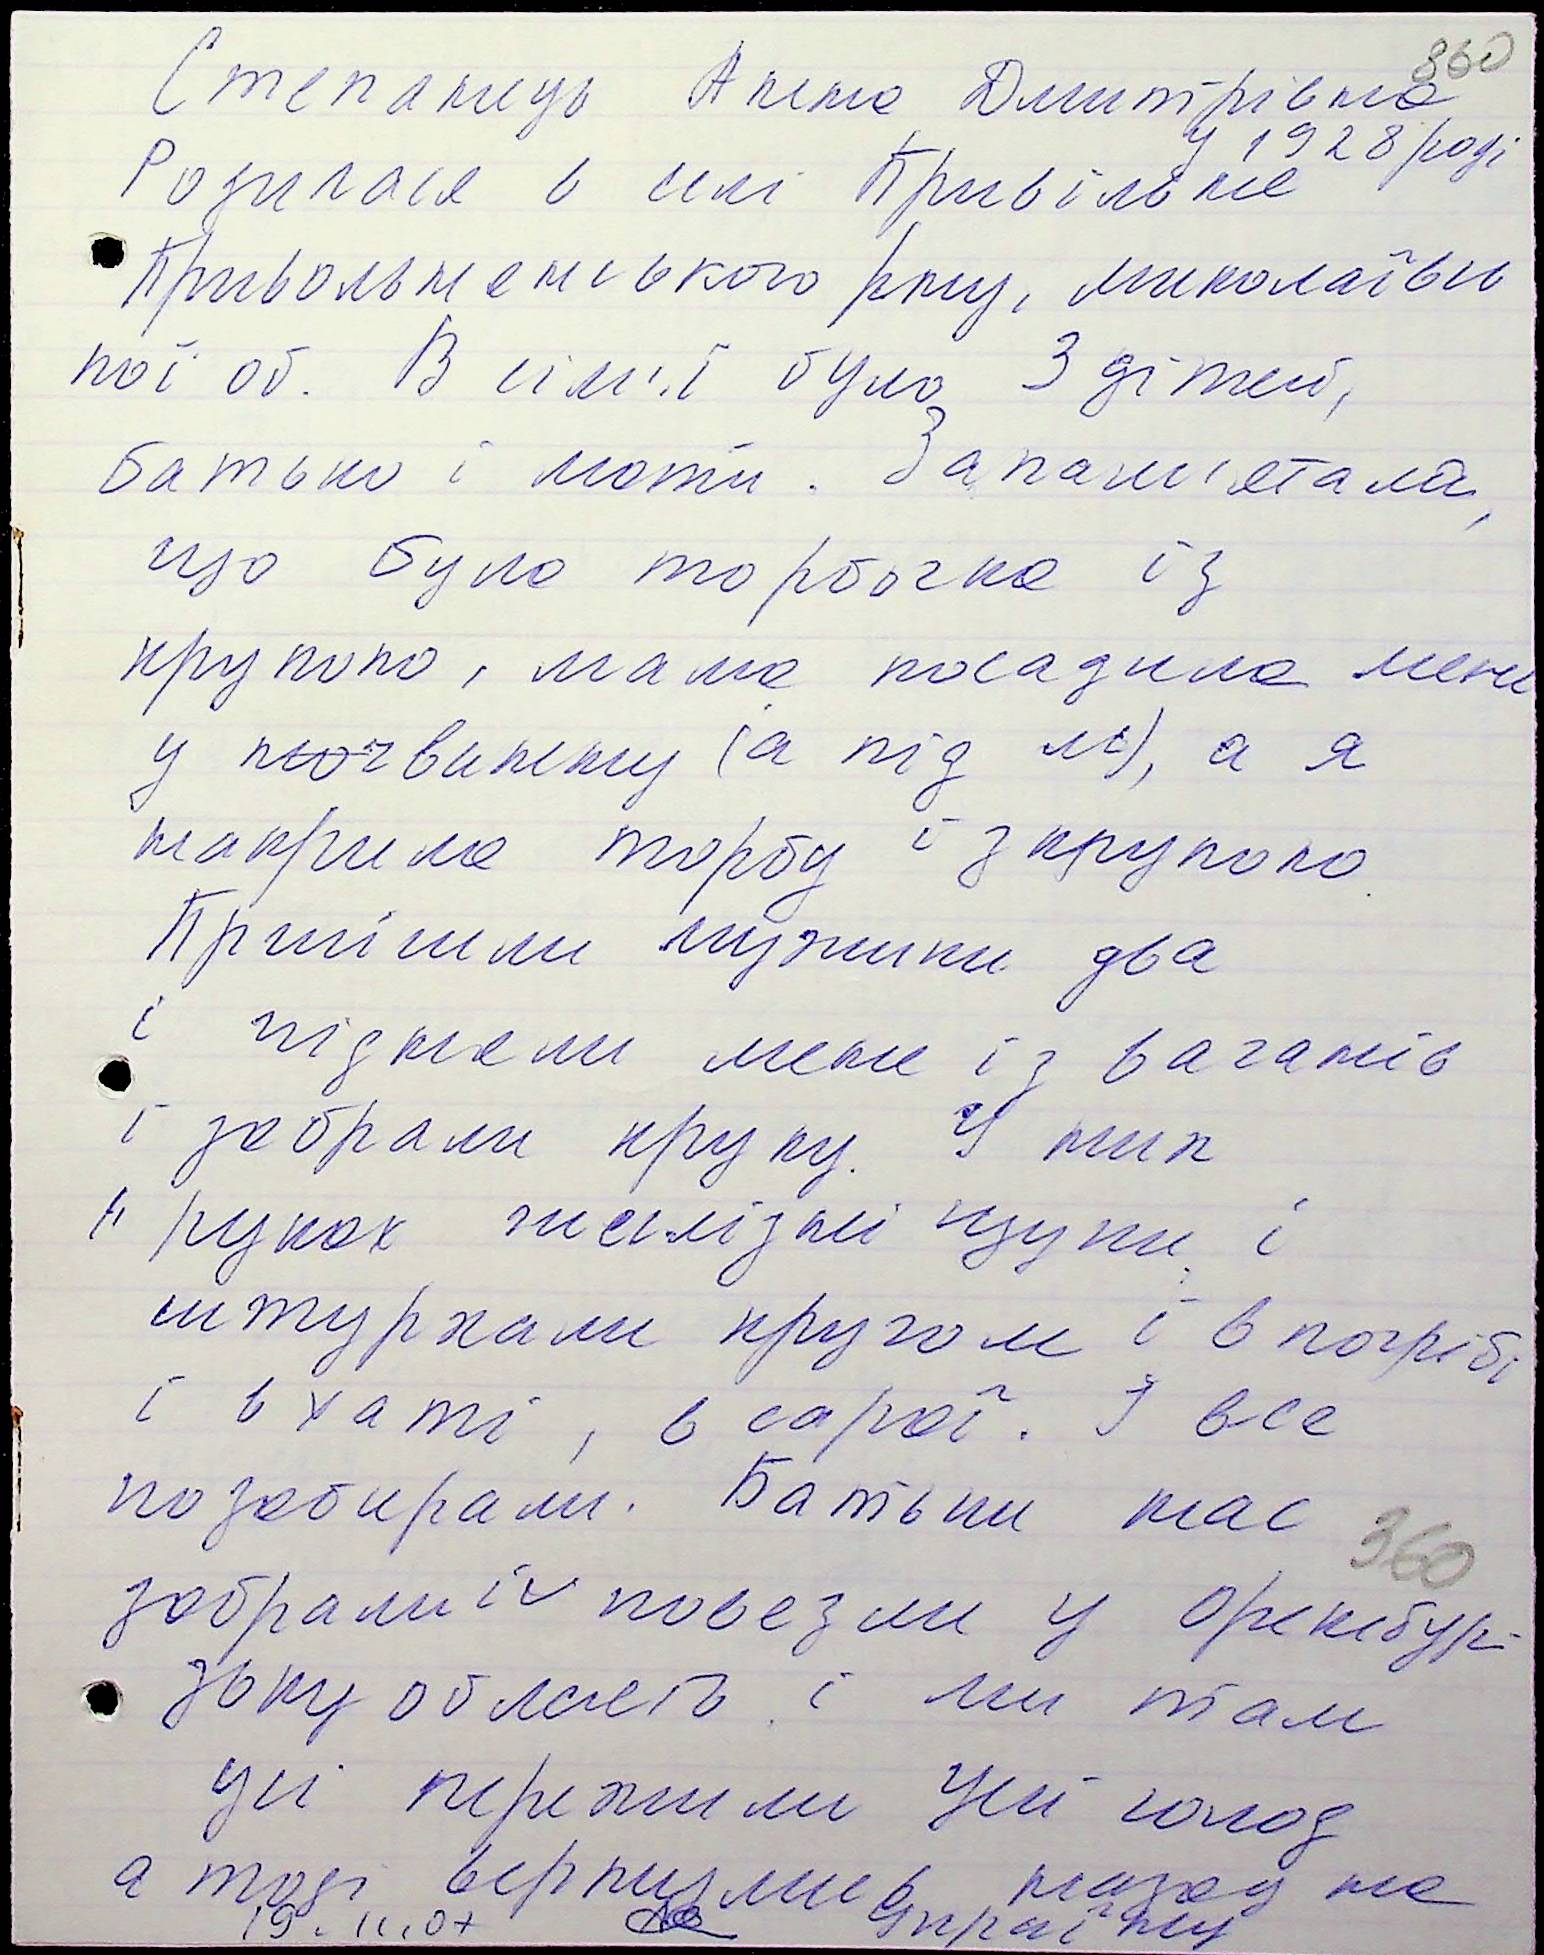 360
Степанець Анна Дмитрівна
у 1928 році
Родилася в селі Привільне
Привольненського р-ну, Миколаївсь
кої об. В сім'ї було 3 дітей,
батько і мати. Запам'ятала,
що була торбочка із
крупою, мама посадила мене
у ванну (а під), а я
накрила торбу із крупою.
Прийшли мужики два
і підняли мене із ваганів
і забрали крупу. У них
в руках желізні щупи, і
штурхали кругом і в погрібі
і в хаті, в сараї. І все
позабирали. Батьки нас
забрали і повезли у Оренбур-
зьку область і ми там
усі пережили цей голод
а тоді вернулись назад на
Україну
360
19.11.07